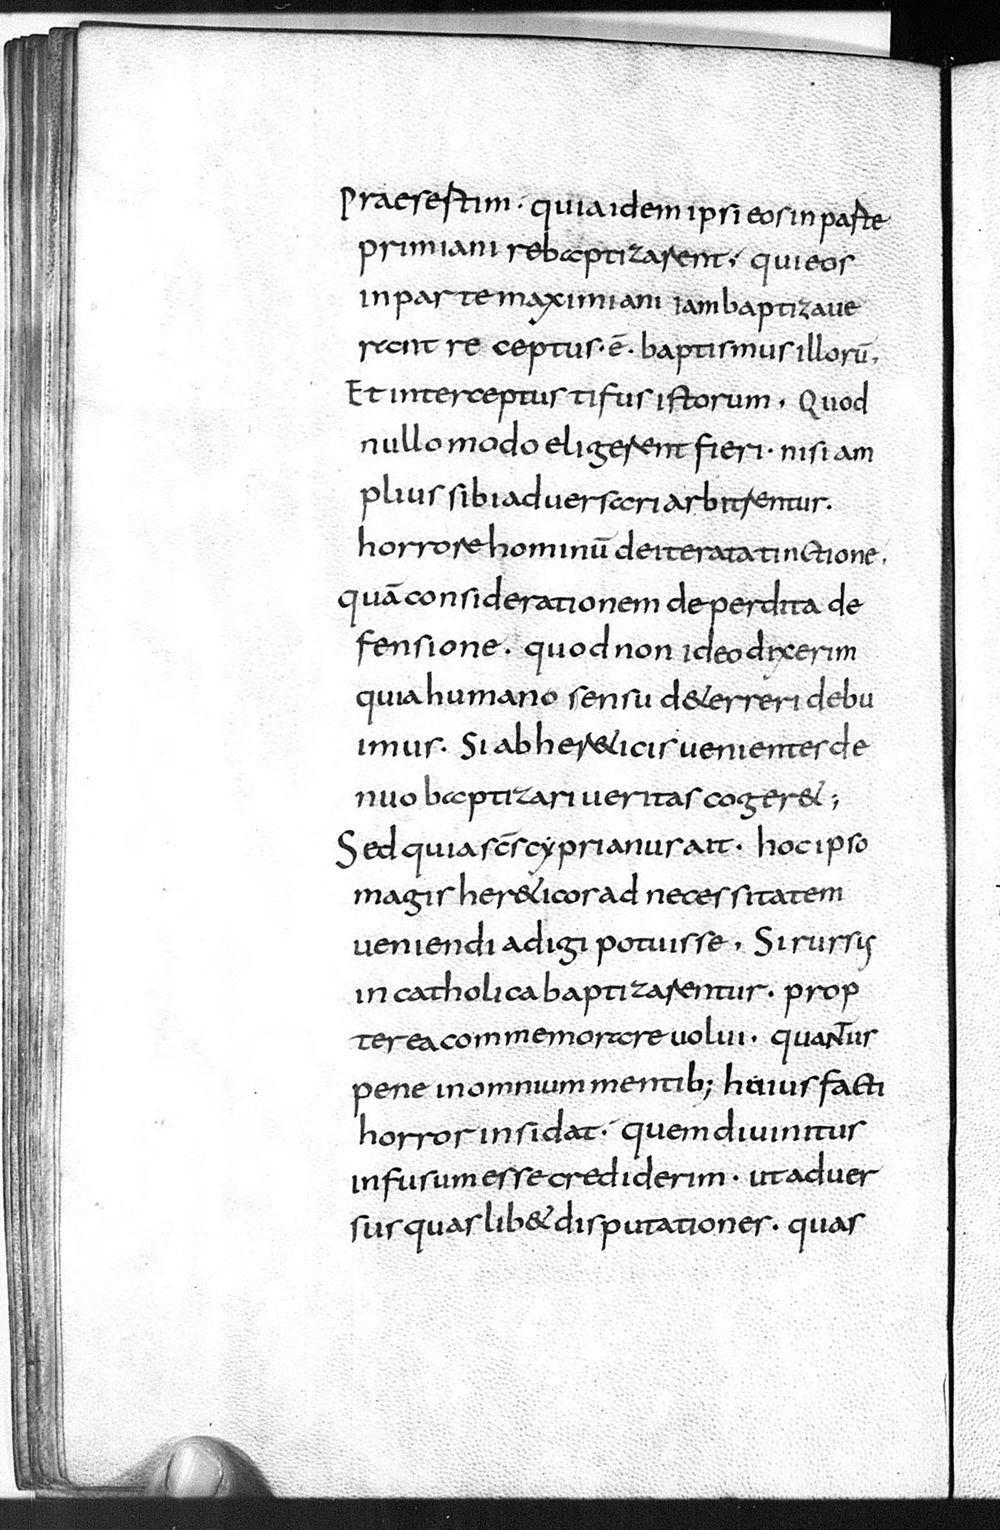 Praesestim · quia idem ipsi eos in parte
primiani rebaptizarent · qui eos
in parte maximiani iam baptizaue
rent re ceptus · ē · baptismus illorū,
Et interceptus tifus istorum, Quod
nullo modo eligerent fieri · nisi am
plius sibi aduersari arbitrentur.
horrore hominū de iterata tinctione,
quā considerationem de perdita de
fensione. quod non ideo dixerim
quia humano sensu d&erreri debu
imus. Si ab her&icis uenientes de
nuo baptizari ueritas coger&;
Sed quia sc̄s cẏprianus ait. hoc ipso
magis her&icos ad necessitatem
ueniendi adigi potuisse, Si rursus
in catholica baptizarentur. prop
terea commemorare uolui. quantus
pene in omnium mentib; huius facti
horror insidat. quem diuinitus
infusum esse crediderim. ut aduer
sus quaslib& disputationes. quas